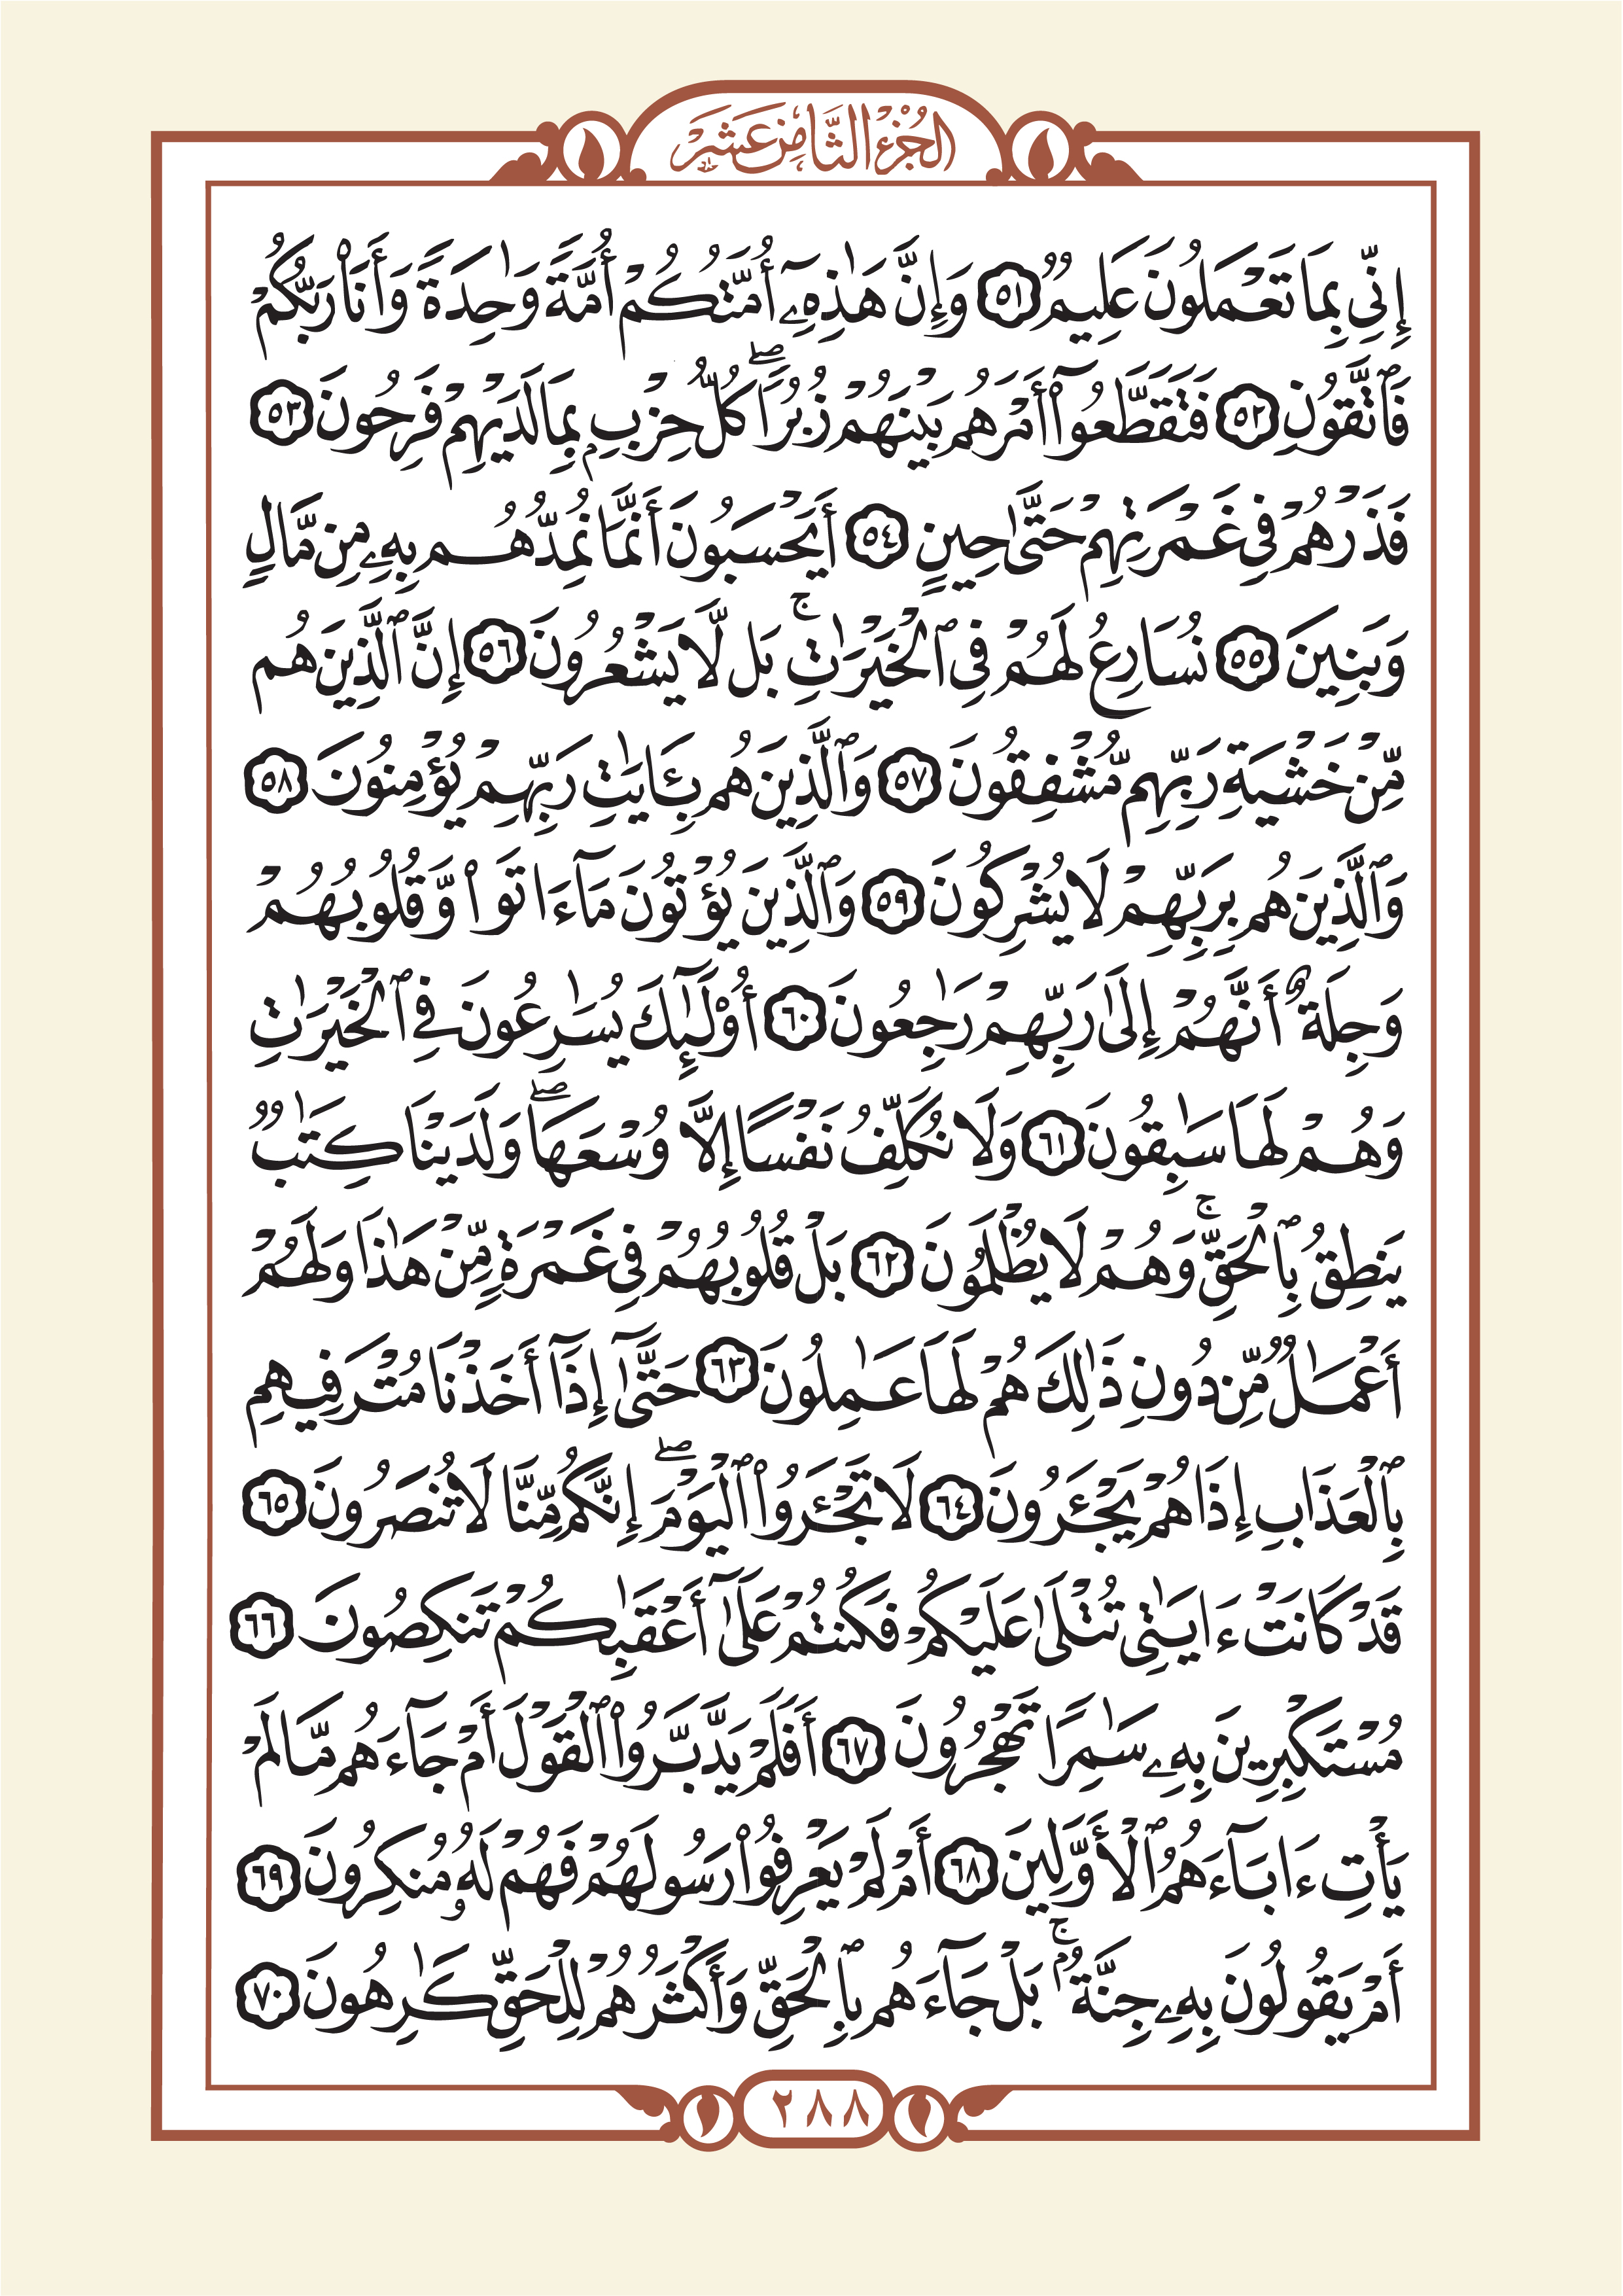 الجُزْءُ الثَّامِنَ عَشَرَ
إِنِّي بِمَا تَعْمَلُونَ عَلِيمٌ ٥١ وَإِنَّ هَٰذِهِۦٓ أُمَّتُكُمْ أُمَّةً وَٰحِدَةً وَأَنَا۠ رَبُّكُمْ
فَٱتَّقُونِ ٥٢ فَتَقَطَّعُوٓا۟ أَمْرَهُم بَيْنَهُمْ زُبُرًا ۖ كُلُّ حِزْبٍۭ بِمَا لَدَيْهِمْ فَرِحُونَ ٥٣
فَذَرْهُمْ فِي غَمْرَتِهِمْ حَتَّىٰ حِينٍ ٥٤ أَيَحْسَبُونَ أَنَّمَا نُمِدُّهُم بِهِۦ مِن مَّالٍ
وَبَنِينَ ٥٥ نُسَارِعُ لَهُمْ فِي ٱلْخَيْرَٰتِ ۚ بَل لَّا يَشْعُرُونَ ٥٦ إِنَّ ٱلَّذِينَ هُم
مِّنْ خَشْيَةِ رَبِّهِم مُّشْفِقُونَ ٥٧ وَٱلَّذِينَ هُم بِـَٔايَٰتِ رَبِّهِمْ يُؤْمِنُونَ ٥٨
وَٱلَّذِينَ هُم بِرَبِّهِمْ لَا يُشْرِكُونَ ٥٩ وَٱلَّذِينَ يُؤْتُونَ مَآ ءَاتَوا۟ وَّقُلُوبُهُمْ
وَجِلَةٌ أَنَّهُمْ إِلَىٰ رَبِّهِمْ رَٰجِعُونَ ٦٠ أُو۟لَٰٓئِكَ يُسَٰرِعُونَ فِي ٱلْخَيْرَٰتِ
وَهُمْ لَهَا سَٰبِقُونَ ٦١ وَلَا نُكَلِّفُ نَفْسًا إِلَّا وُسْعَهَا ۖ وَلَدَيْنَا كِتَٰبٌ
يَنطِقُ بِٱلْحَقِّ ۚ وَهُمْ لَا يُظْلَمُونَ ٦٢ بَلْ قُلُوبُهُمْ فِي غَمْرَةٍ مِّنْ هَٰذَا وَلَهُمْ
أَعْمَٰلٌ مِّن دُونِ ذَٰلِكَ هُمْ لَهَا عَٰمِلُونَ ٦٣ حَتَّىٰٓ إِذَآ أَخَذْنَا مُتْرَفِيهِم
بِٱلْعَذَابِ إِذَا هُمْ يَجْـَٔرُونَ ٦٤ لَا تَجْـَٔرُوا۟ ٱلْيَوْمَ ۖ إِنَّكُم مِّنَّا لَا تُنصَرُونَ ٦٥
قَدْ كَانَتْ ءَايَٰتِي تُتْلَىٰ عَلَيْكُمْ فَكُنتُمْ عَلَىٰٓ أَعْقَٰبِكُمْ تَنكِصُونَ ٦٦
مُسْتَكْبِرِينَ بِهِۦ سَٰمِرًا تَهْجُرُونَ ٦٧ أَفَلَمْ يَدَّبَّرُوا۟ ٱلْقَوْلَ أَمْ جَآءَهُم مَّا لَمْ
يَأْتِ ءَابَآءَهُمُ ٱلْأَوَّلِينَ ٦٨ أَمْ لَمْ يَعْرِفُوا۟ رَسُولَهُمْ فَهُمْ لَهُۥ مُنكِرُونَ ٦٩
أَمْ يَقُولُونَ بِهِۦ جِنَّةٌۢ ۚ بَلْ جَآءَهُم بِٱلْحَقِّ وَأَكْثَرُهُمْ لِلْحَقِّ كَٰرِهُونَ ٧٠
٢٨٨